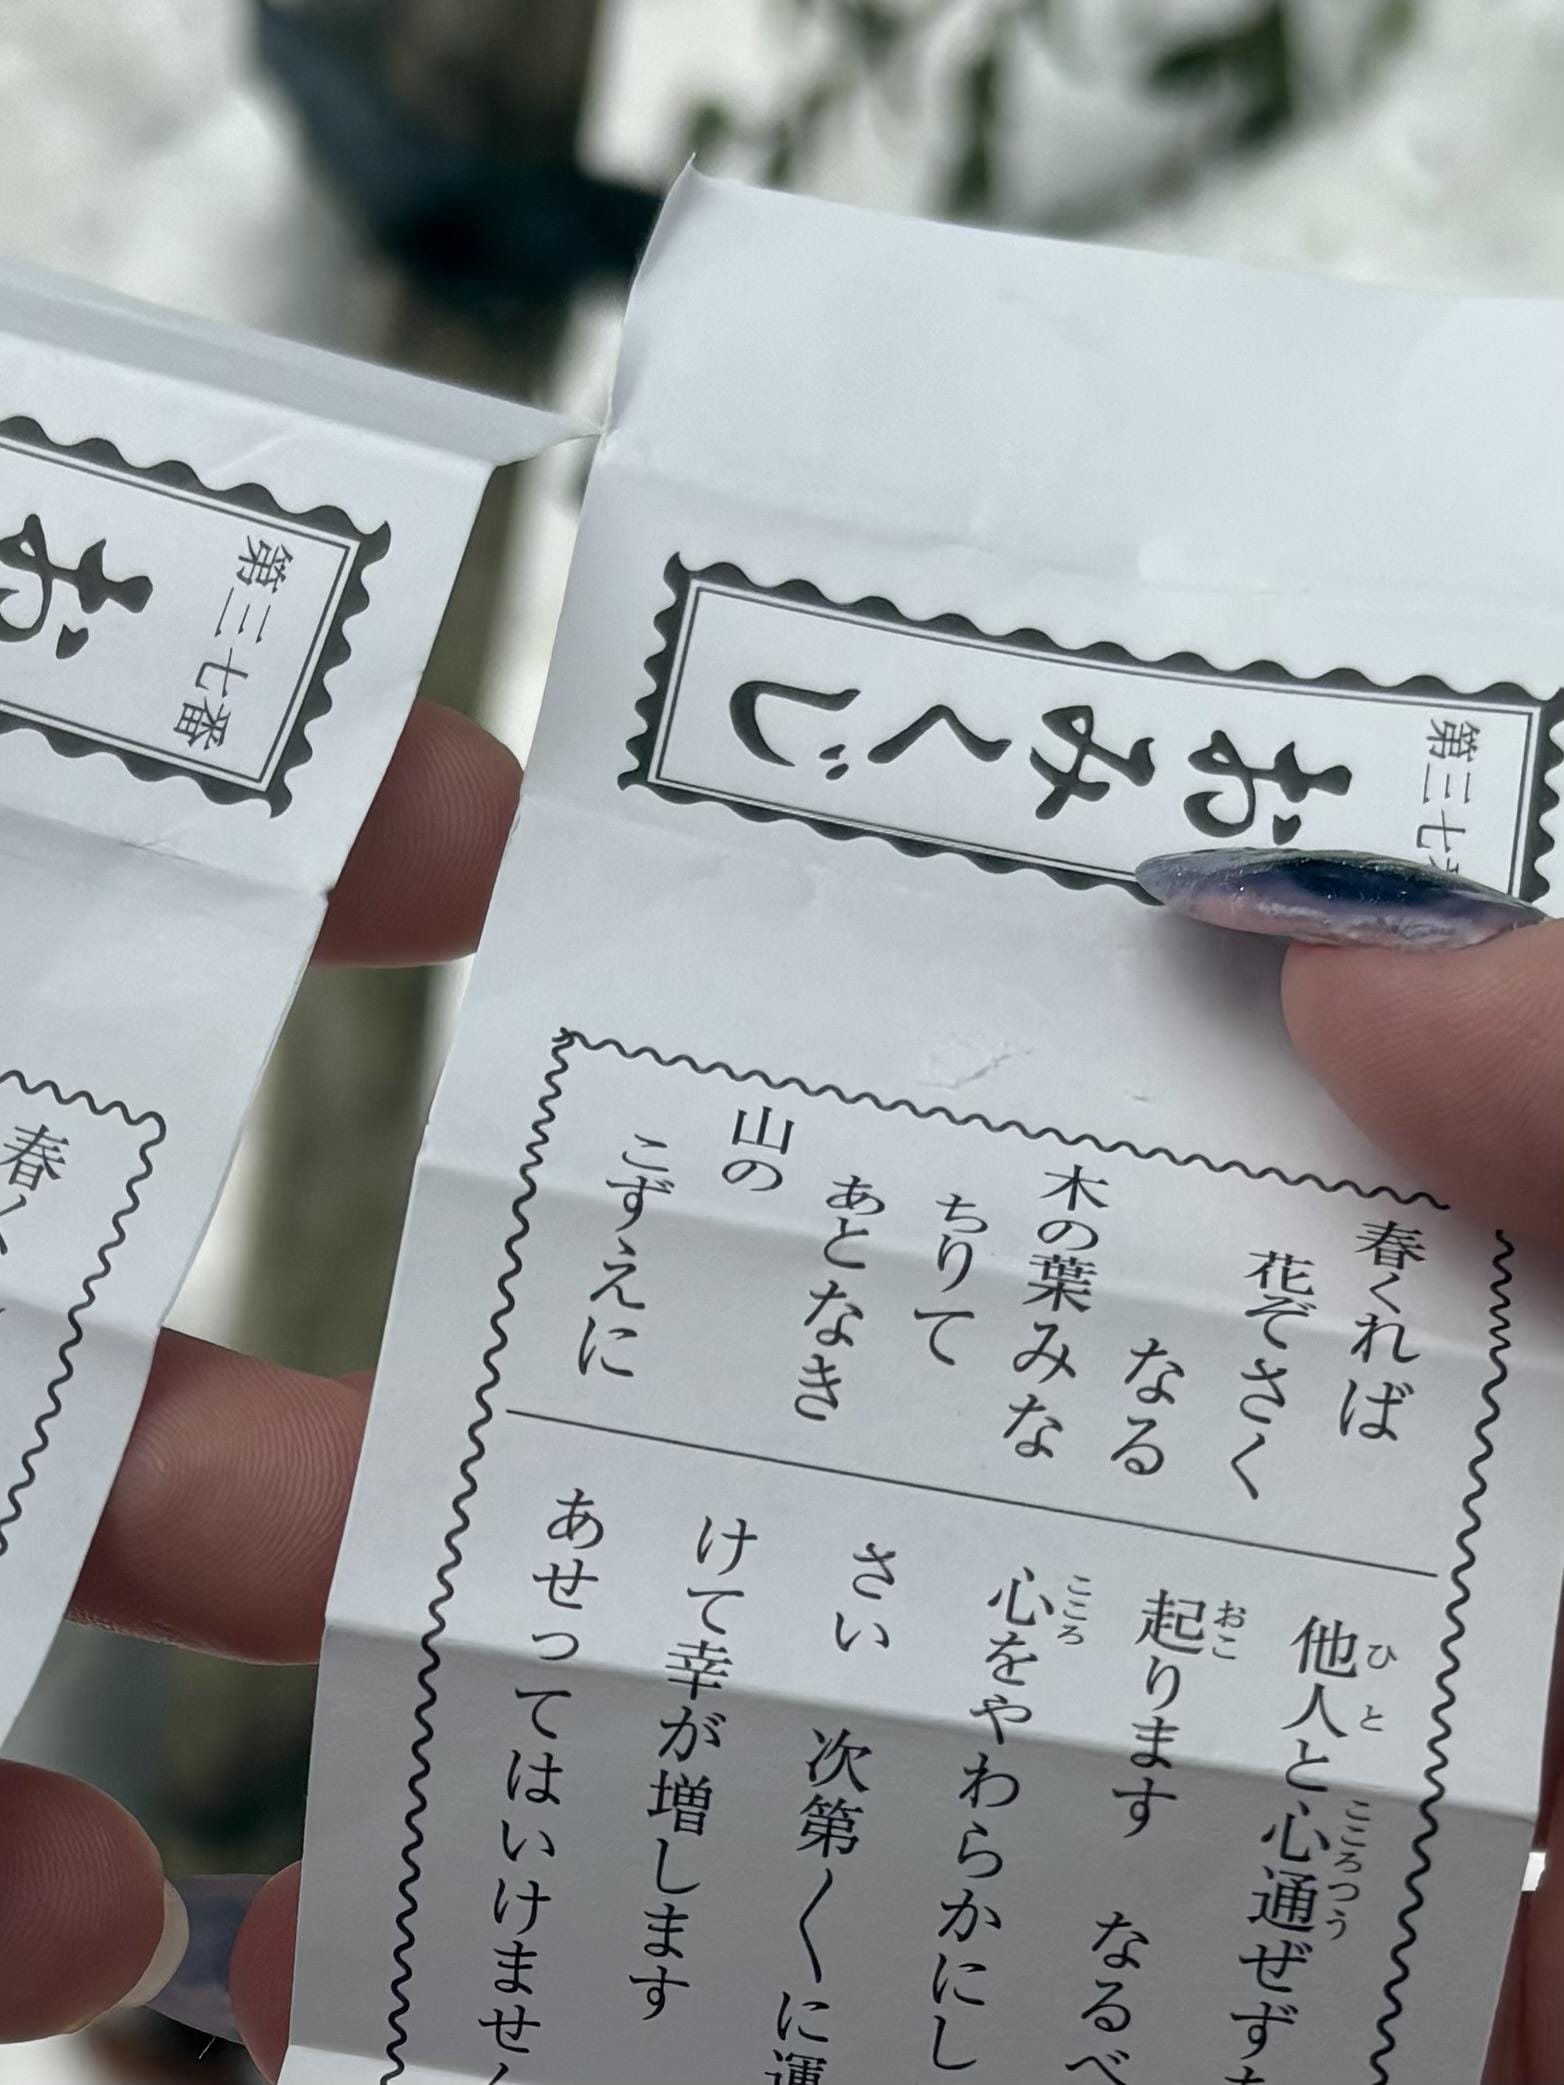 第三七
おみくじ
春くれば
花ぞさく
なる
木の葉みな
ちりて
あとなき
山の
こずえに
他人と心通ぜず
ひと
こころつう
起ります なるべ
おこ
心をやわらかにし
こころ
さい 次第〱に運
けて幸が増します
あせってはいけません
第三七番
お
春く